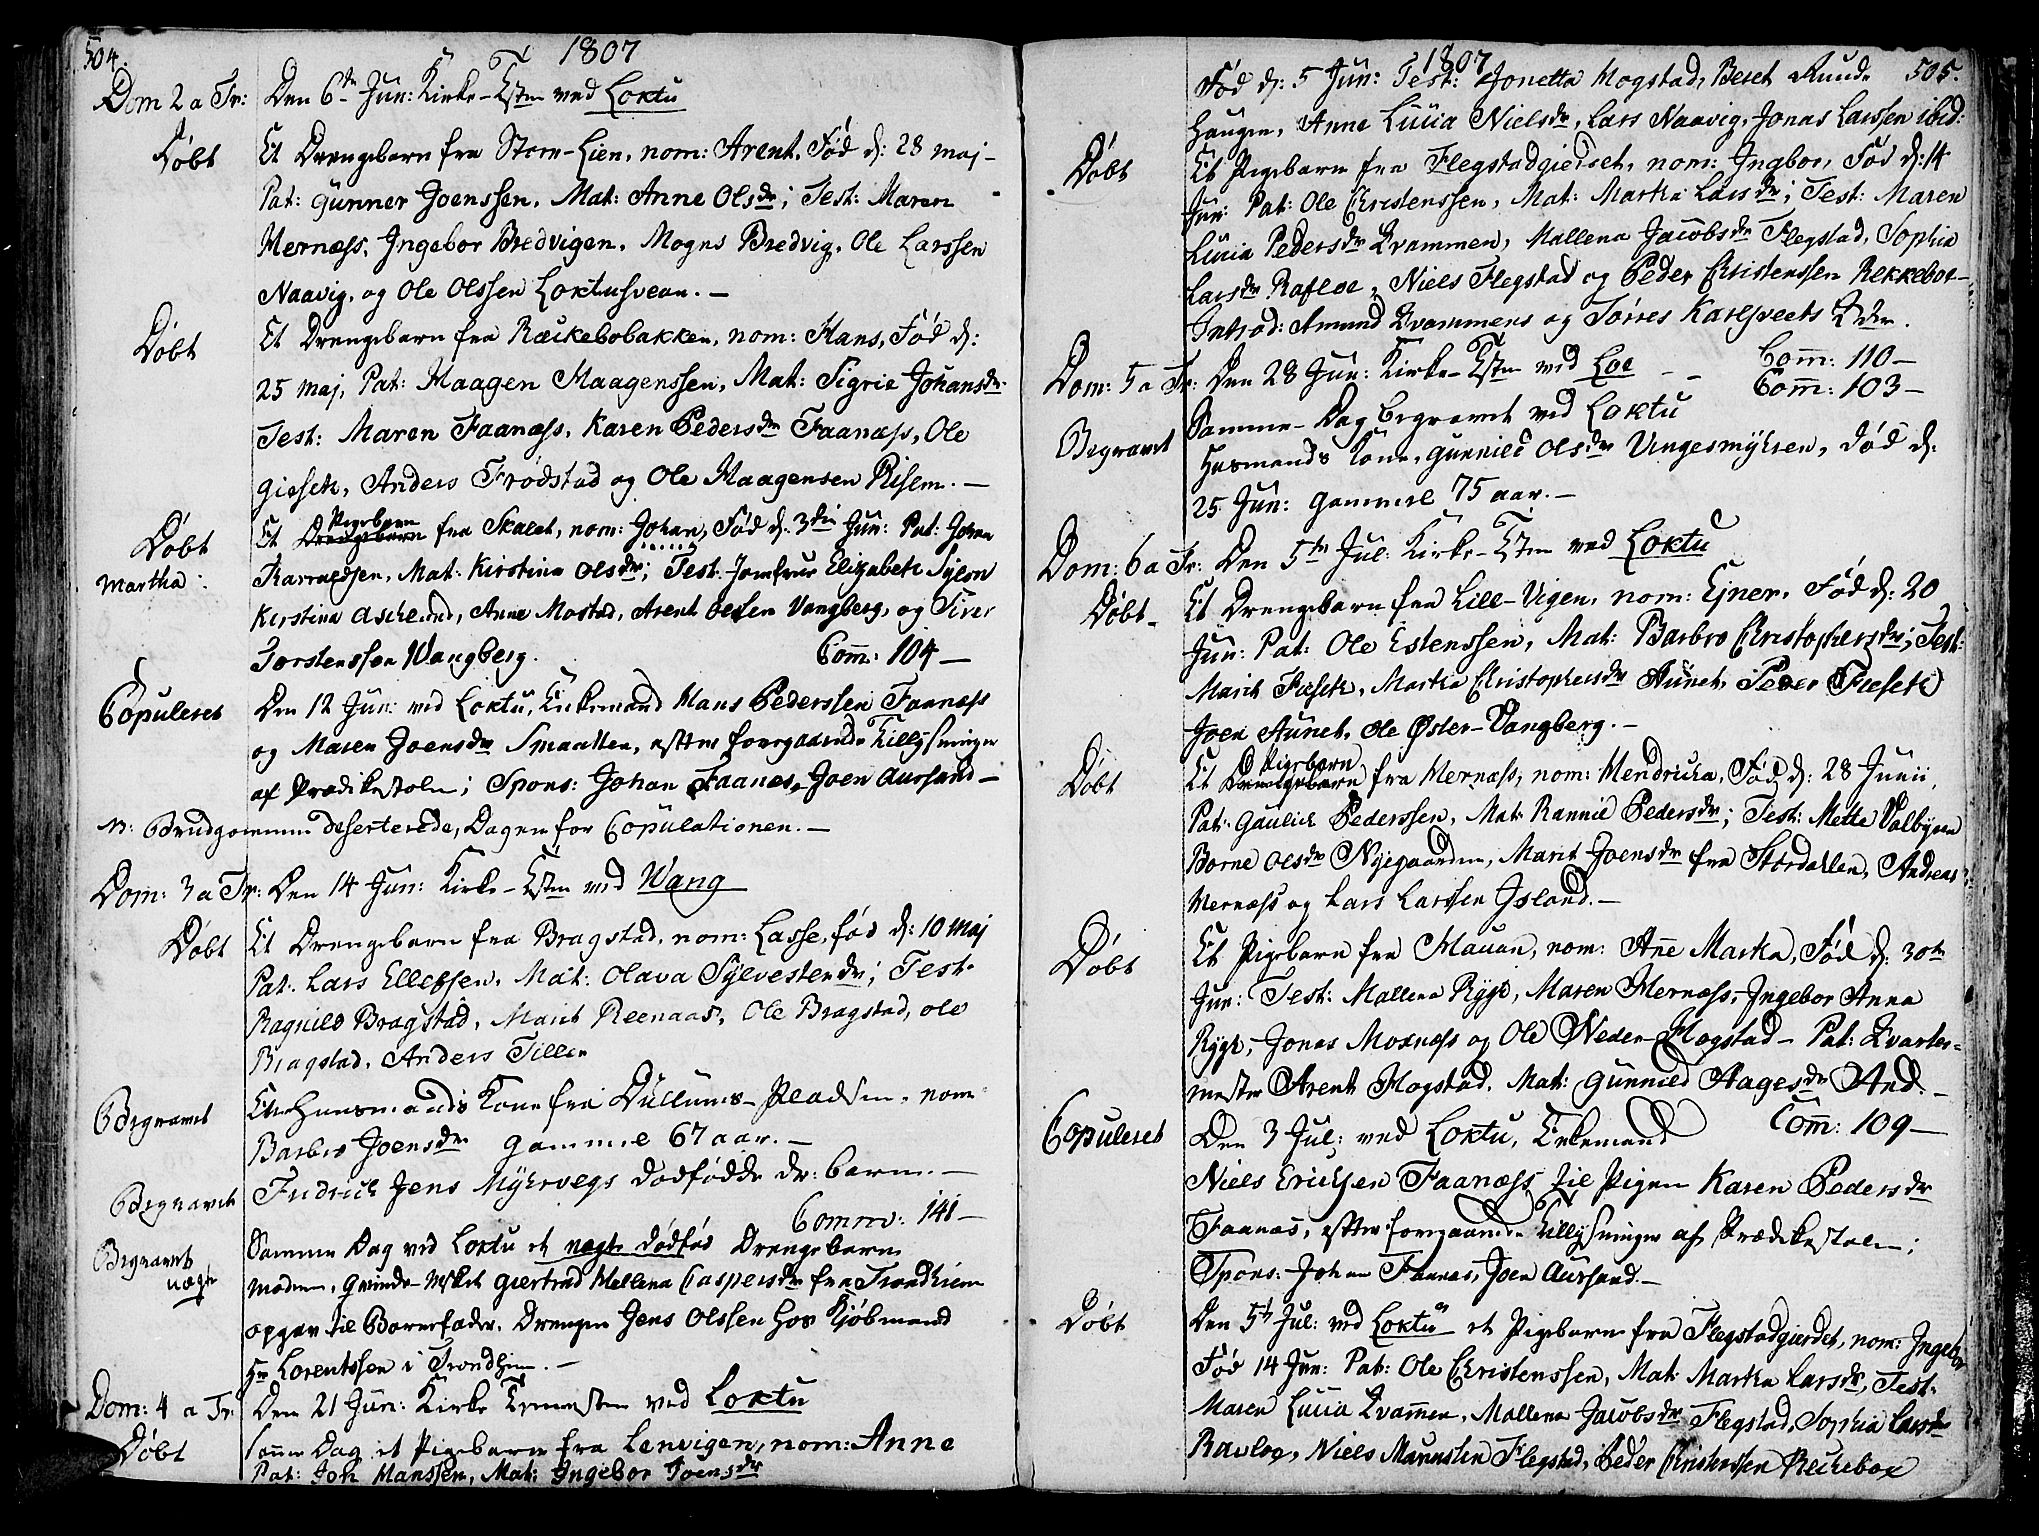 504.
1807
Dom 2 a Tr: Den 6te Jun: Kirke-Tsten ved Loktu
Døbt Et Drengebarn fra Storm-Lien, nom: Arent, Fød d: 28 maj-
Pat: Gunner Joenssen, Mat: Anne Olsdr; Test: Maren
Mernæss, Ingebor Bredvigen, Mogns Bredvig, Ole Larssen
Naavig, og Ole Olssen Loktusvean.-
Døbt Et Drengebarn fra Ræckebobakken, nom: Hans, Fød d:
25 maj, Pat: Haagen Haagenssen, Mat: Sigrie Johansdr
Test: Maren Faanæss, Karen Pedersdr Faanæss, Ole
Gieseth, Anders Frødstad og Ole Haagensen Risem.-
Døbt Et Drengebarn Pigebarn fra Skalet, nom: Johan, Fød d. 3die Jun: Pat: Johan
Martha: Mat: Kirstina Olsdr; Test: Jomfrue Elizabeth
Kirstina Anne Mostad, Arent Olssen Vangberg, og
Torstenssen Wangberg. Com: 104-
Copuleret Den 12 Jun: ved Loktu, Enkemand Hans Pederssen Faanæss
og Maren Joensdr efter foregaaende Tillysninger
af Prædikestolen; Spons: Johan Faanæs, Joen Aursand-
N: Brudgommen deserterede, Dagen for Copulationen.-
Dom: 3 a Tr: Den 14 Jun: Kirke-Tsten ved Wang
Døbt Et Drengebarn fra Bragstad, nom: Lasse, fød d: 10 Maj
Pat: Lars Ellefsen, Mat: Olava Sylvesterdr; Test:
Ragnild Bragstad, Marit Reenaas, Ole Bragstad, ole
Bragstad, Anders Tiller
Begravet En Huusmands Kone fra Dullums-Pladsen, nom:
Barbro Joensdr gammel 67 aar.-
Begravet Fridrich Jens Myhrvegs dødfødde dr: barn.-
Comm: 141-
Begravet Samme Dag ved Loktu et uægte dødfød Drengebarn
uægte Moderen, Giertrud Mellena Caspersdr fra Trondhiem
opgav til Barnefader, Drengen Jens Olssen hos Kjøbmand
Hr Lorentssen i Trondhiem.-
Dom: 4 a Tr: Den 21 Jun: Kirke Tienesten ved Loktu
Døbt samme Dag et Pigebarn fra Lenvigen, nom: Anne
Pat: Joh Hanssen, Mat: Ingebor Joensdr
1807
505.
Fød d: 5 Jun: Test: Jonetta Mogstad, Beret Ruud
Haugen, Anne Lucia Nielsdr, Lars Naavig, Jonas Larssen ibid:
Døbt Et Pigebarn fra Flegstadgierdet, nom: Ingbor, Fød d: 14
Jun: Pat: Ole Christenssen, Mat: Martha Larsdr; Test: Maren
Lucia Pedersdr Qvammen, Mallena Jacobsdr Flegstad, Sophia
Larsdr Rafloe, Niels Flegstad og Peder Christenssen Rekkeboe-
Introd: Amund Qvammens og Torres Karlsveets Qdr.
Com: 110-
Dom: 5 a Tr: Den 28 Jun: Kirke-Tsten ved Loe -- Com: 103-
Samme-Dag begravet ved Loktu
Begravet Husmands Kone, Gunnild Olsdr Ungesmyhren, død d:
25 Jun: gammel 75 aar.-
Dom: 6 a Tr: Den 5te Jul: Kirke-Tsten ved Loktu
Døbt Et Drengebarn fra Lill-Vigen, nom: Ejner, Fød d: 20
Jun: Pat: Ole Estenssen, Mat: Barbro Christophersdr; Test:
Marit Fieseth, Martha Christophersdr Aunet, Peder Fieseth
Joen Aunet, Ole Øster-Vangberg.-
Døbt Et Drengebarn Pigebarn fra Mernæss, nom: Hendricka, Fød d: 28 Junii,
Pat: Gaulich Pederssen, Mat: Rannie Pedersdr; Test: Mette Valbyen
Borne Olsdr Nyegaarden, Marit Joensdr fra Stordallen, Andreas
Mernæss og Lars Larssen Island.-
Døbt Et Pigebarn fra Hauan, nom: Anne Marta, Fød d: 30te
Jun: Test: Mallena Rygh, Maren Hernæss, Ingebor Anna
Rygh, Jonas Moxnæss og Ole Neder-Mogstad- Pat: Qvarteer-
mester Arent Hogstad, Mat: Gunnild Aagesdr And.-
Com: 109-
Copuleret Den 3 Jul: ved Loktu, Enkemand
Niels Erichsen Faanæss til Pigen Karen Pedersdr
Faanæs, efter foregaaende Tillysninger af Prædikestolen;
Spons: Johan Faanæs, Joen Aursand.-
Døbt Den 5te Jul: ved Loktu et Pigebarn fra Flegstadgierdet, nom: Ingebor
Fød 14 Jun: Pat: Ole Christenssen, Mat: Martha Larsdr, Test:
Maren Lucia Qvammen, Mallena Jacobsdr Flegstad, Sophia Larsdr
Ravloe, Niels Flegstad, Peder Christenssen Reckeboe